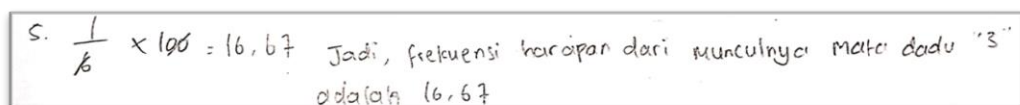 5. 1/6 × 100 = 16,67 Jadi, frekuensi harapan dari munculnya mata dadu "3"
adalah 16,67